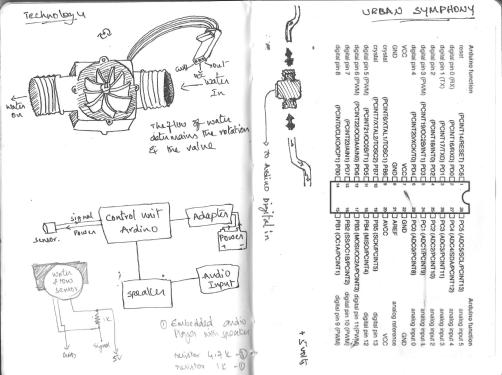 Technology
Water
In
Water
Out
The flow of water
the rotation
of the value
Signal
Power
Sensor
Control unit
Arduino
Adapter
Power
Speaker
Audio
Input
Water
flow
sensor
1K
GND
Signal
5V
① Embedded audio
Player with speaker
resistor 4.7K - ①
resistor 1K - ①
URBAN SYMPHONY
TO Arduino Digital in
+ 5volts
Arduino function
reset
digital pin 0 (RX)
digital pin 1 (TX)
digital pin 2
digital pin 3 (PWM)
digital pin 4
VCC
GND
crystal
crystal
digital pin 5 (PWM)
digital pin 6 (PWM)
digital pin 7
digital pin 8
(PCINT14/RESET) PC6
(PCINT16/RXD) PD0
(PCINT17/TXD) PD1
(PCINT18/INT0) PD2
(PCINT19/OC2B/INT1) PD3
(PCINT20/XCK/T0) PD4
VCC
GND
(PCINT6/XTAL1/TOSC1) PB6
(PCINT7/XTAL2/TOSC2) PB7
(PCINT21/OC0B/T1) PD5
(PCINT22/OC0A/AIN0) PD6
(PCINT23/AIN1) PD7
(PCINT0/CLKO/ICP1) PB0
PC5 (ADC5/SCL/PCINT13)
PC4 (ADC4/SDA/PCINT12)
PC3 (ADC3/PCINT11)
PC2 (ADC2/PCINT10)
PC1 (ADC1/PCINT9)
PC0 (ADC0/PCINT8)
GND
AREF
AVCC
PB5 (SCK/PCINT5)
PB4 (MISO/PCINT4)
PB3 (MOSI/OC2A/PCINT3)
PB2 (SS/OC1B/PCINT2)
PB1 (OC1A/PCINT1)
Arduino function
analog input 5
analog input 4
analog input 3
analog input 2
analog input 1
analog input 0
GND
analog reference
VCC
digital pin 13
digital pin 12
digital pin 11(PWM)
digital pin 10 (PWM)
digital pin 9 (PWM)